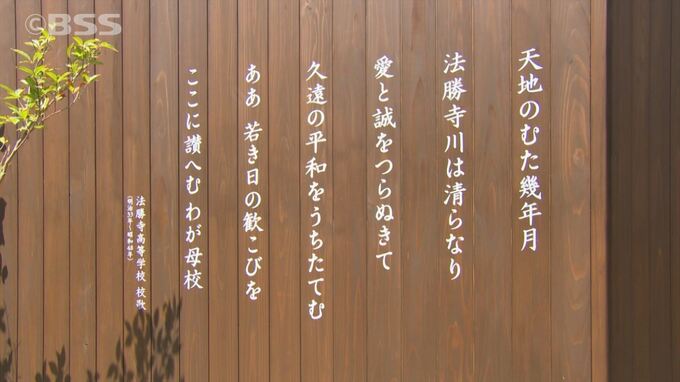 ©BSS
天地のむた幾年月
法勝寺川は清らなり
愛と誠をつらぬきて
久遠の平和をうちたてむ
ああ 若き日の歓こびを
ここに讃へむ わが母校
法勝寺高等学校 校歌
(明治33年~昭和48年)